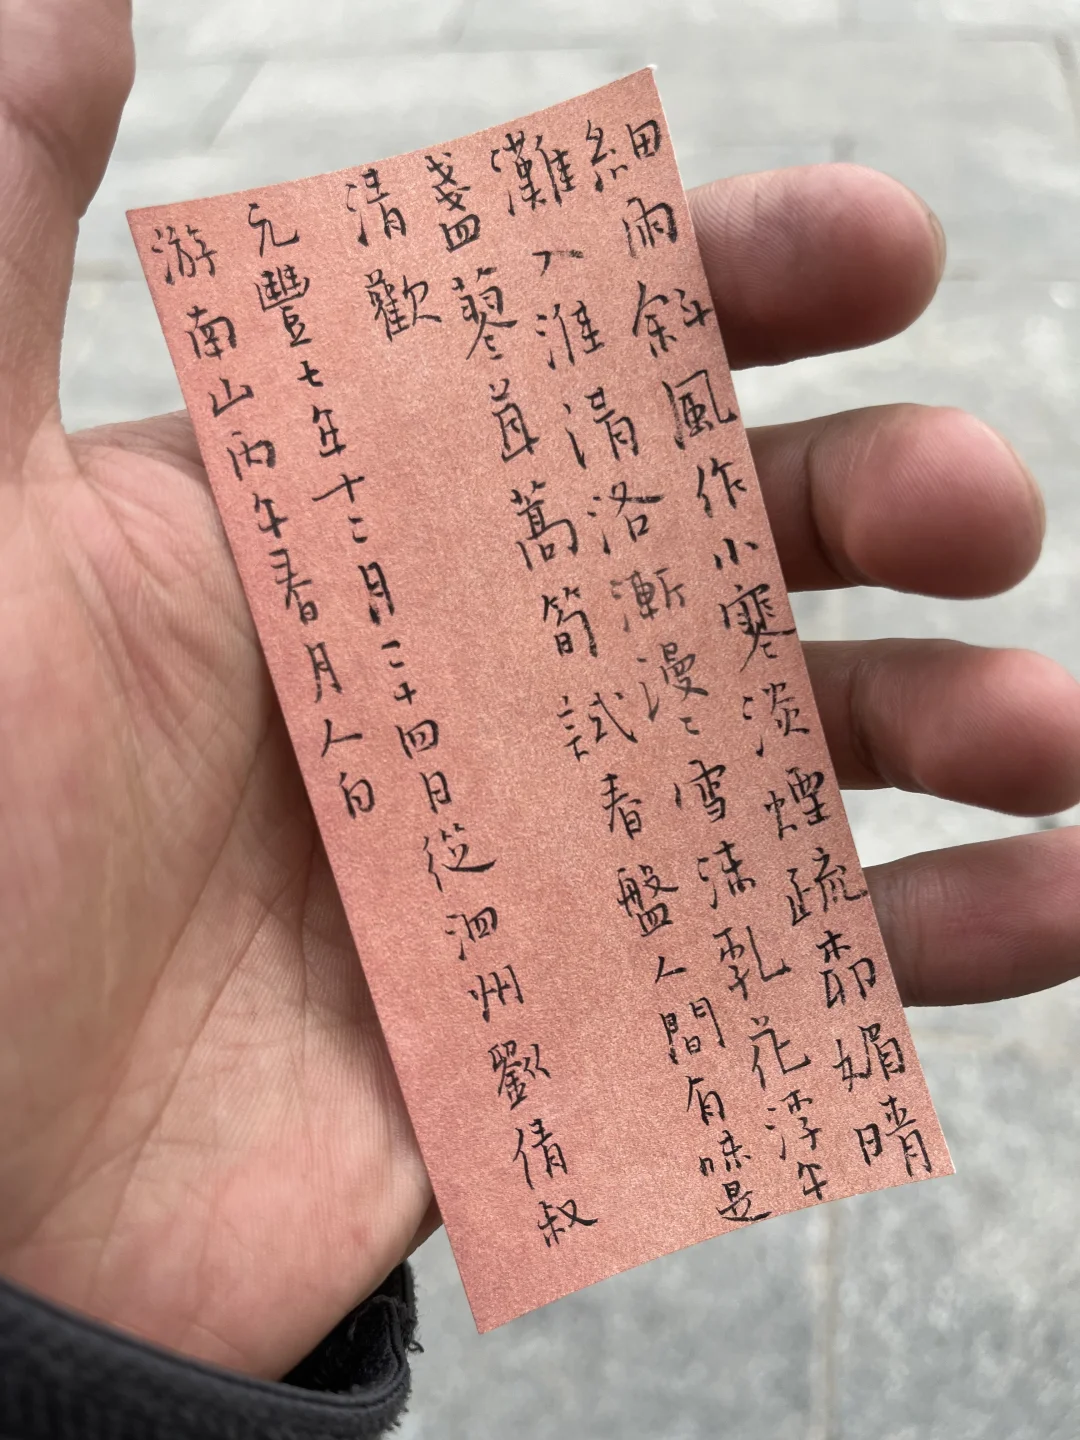 細雨斜風作小寒淡煙疏柳媚晴
灘入淮清洛漸漫〻雪沫乳花浮午
盞蓼茸蒿筍試春盤人間有味是
清歡
元豐七年十二月二十四日從泗州劉倩叔
游南山丙午春月人白